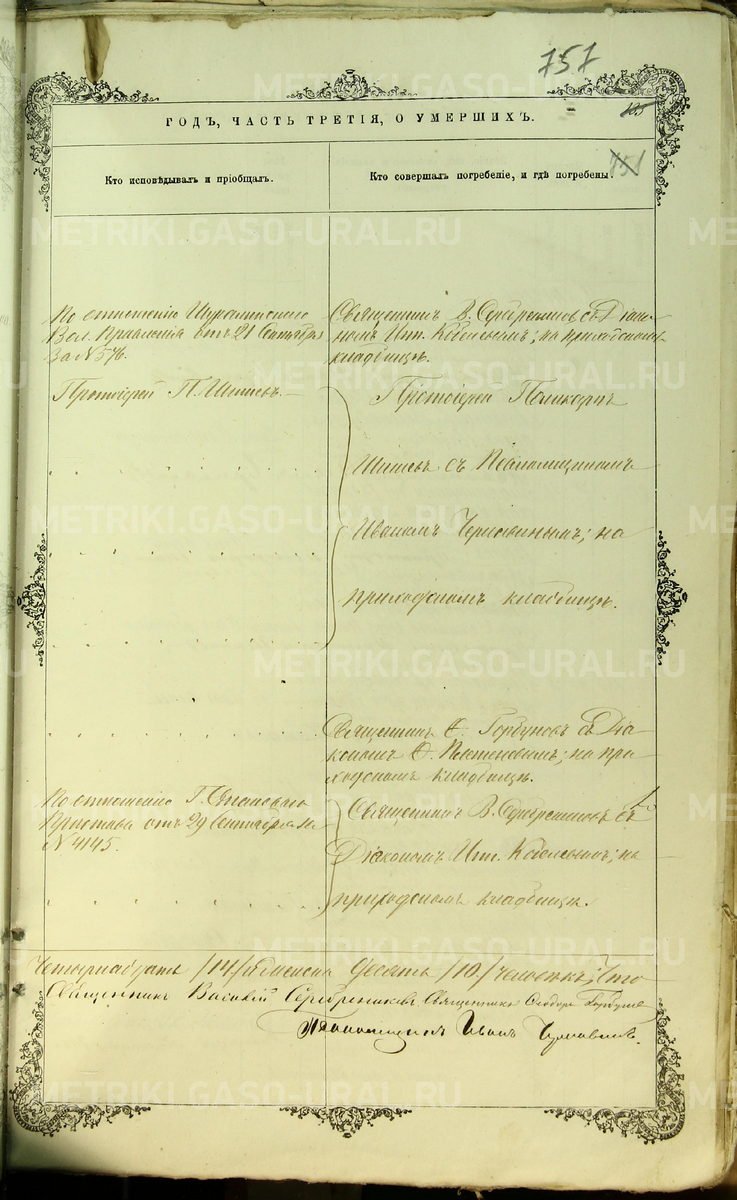 757
185
ГОДЪ, ЧАСТЬ ТРЕТІЯ, О УМЕРШИХЪ.
151
Кто исповѣдывалъ и пріобщалъ.
Кто совершалъ погребеніе, и гдѣ погребены.
По отношенію
Вол. Правленія отъ 21 Сентября
за № 576.
Священникъ В. Серебренниковъ съ Діако-
номъ Ипп. Кобелевымъ; на приходскомъ
кладбищѣ.
Протоіерей П. Шишевъ.
Протоіерей Поликарпъ
Шишевъ съ Псаломщикомъ
Иваномъ Чернавинымъ; на
приходскомъ кладбищѣ.
Священникъ Ѳ. Горбуновъ съ Діа-
кономъ Ѳ. на при-
ходскомъ кладбищѣ.
По отношенію Г. Становаго
Пристава отъ 29 Сентября за
№ 4145.
Священникъ В. Серебренниковъ съ
Діакономъ Ипп. Кобелевымъ; на
приходскомъ кладбищѣ.
Четырнадцать /14/ и женска десять /10/ человѣкъ; Что
Священникъ Василій Серебренниковъ Священникъ Ѳеодоръ Горбуновъ
Псаломщикъ Иванъ Чернавинъ.
METRIKI.GASO-URAL.RU